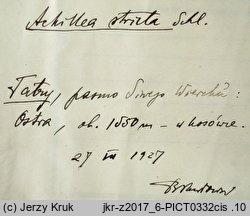 Achillea stricta Schl.
Tatry, pasmo Siwego Wierchu:
Ostra, ok. 1550 m – w kosówce.
27 VII 1927
(c) Jerzy Kruk jkr-z2017_6-PICT0332cis_.10